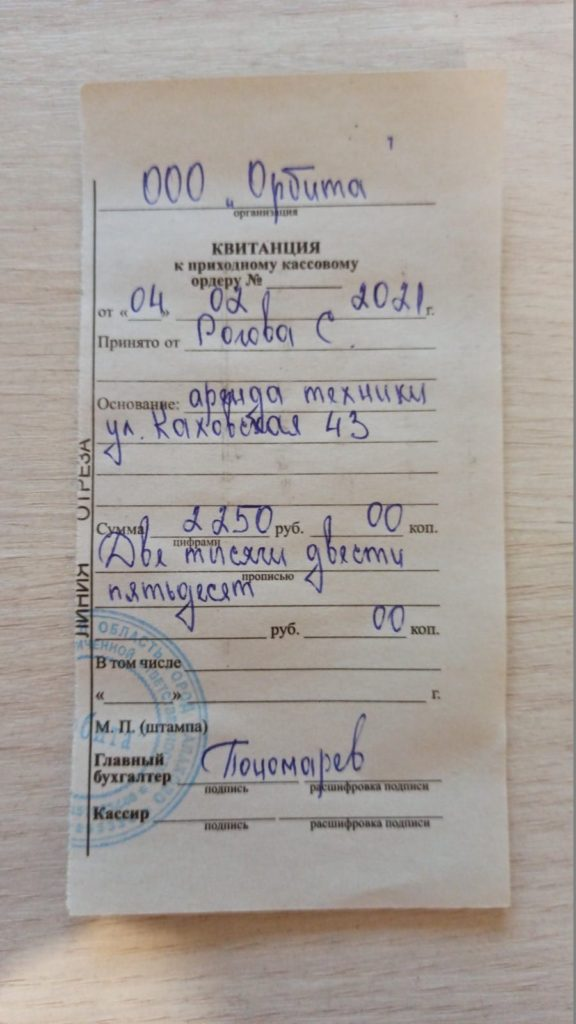 ООО „Орбита
организация
КВИТАНЦИЯ
к приходному кассовому
ордеру № ________
от «04» 02 2021 г.
Принято от Рогова С.
Основание: аренда техники
ул. Каховская 43
Сумма 2250 руб. 00 коп.
цифрами
Две тысячи двести
прописью
пятьдесят
руб. 00 коп.
В том числе
«________» г.
М. П. (штампа)
Главный
бухгалтер Пономарев
подпись расшифровка подписи
Кассир
подпись расшифровка подписи
ЛИНИЯ ОТРЕЗА
ОБЛАСТЬ ГОРОД